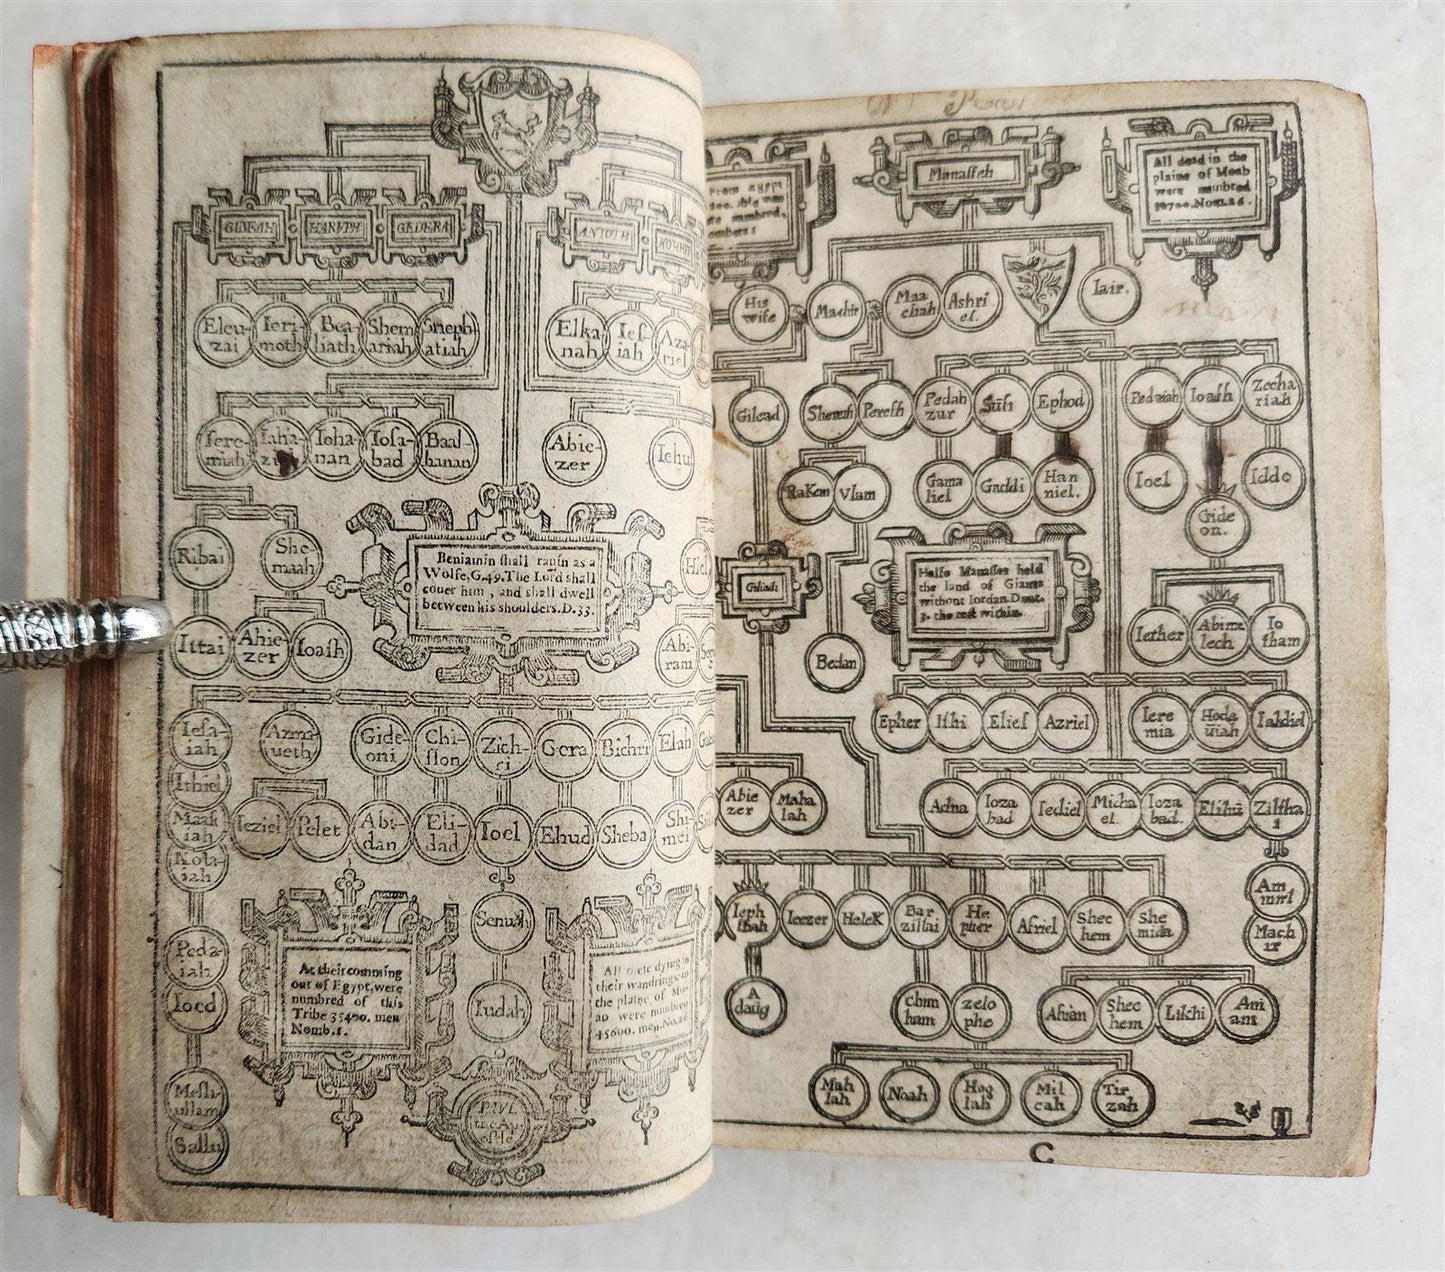 GIBEAH HARUPH GEDERA
ANTOTH
Eleu-
zai
Ieri-
moth
Bea-
liath
Shem
ariah
Sheph
atiah
Elka
nah
Ies
iah
Aza-
riel
Iere-
miah
Ioha-
nan
Iosa-
bad
Baal-
hanan
Abie-
zer
Iehu
Beniamin shall rauin as a
Wolfe, G.49. The Lord shall
couer him, and shall dwell
between his shoulders. D.33.
Ribai
She-
maah
Ittai
Ahie-
zer
Ioash
Abi-
ram
Iesa-
iah
Azma-
ueth
Gide-
oni
Chi-
slon
Zich-
ri
Gera
Bichri
Elah
Ithiel
Maas
iah
Kola-
iah
Ieziel
Pelet
Abi-
dan
Eli-
dad
Ioel
Ehud
Sheba
Shi-
mei
Peda-
iah
Ioed
Mesh-
ullam
Sallu
At their comming
out of Egypt, were
numbred of this
Tribe 35400. men
Nomb.1.
Senuah
Iudah
All these dying in
their wandrings, in
the plaine of Mo-
ab were numbred
45600. men. No.26
PAVL
the Ap-
ostle
From Egypt
Manasseh
All dead in the
plaine of Moab
were numbred
52700. Nom.26.
His
wife
Machir
Maa
chah
Ashri
el.
Iair.
Gilead
Sheresh
Peresh
Pedah
zur
Susi
Ephod
Pedaiah
Ioash
Zecha
riah
Rakem
Vlam
Gama
liel
Gaddi
Han
niel.
Ioel
Gide
on.
Iddo
Giliadi
Halfe Manasses held
the land of Giants
without Iordan. Deut.
3. the rest within.
Bedan
Iether
Abime
lech
Io
tham
Epher
Ishi
Eliel
Azriel
Iere
mia
Hoda
uiah
Iahdiel
Abie
zer
Maha
lah
Adna
Ioza
bad
Iediel
Micha
el.
Ioza
bad.
Elihū
Ziltha
i
Ieph
thah
Ieezer
Helek
Bar
zillai
He
pher
Asriel
Shec
hem
She
mida
Am
miel
Mach
ir
A
daūg
chim
ham
zelo
phe
Ahian
Shec
hem
Likhi
Ani
am
Mah
lah
Noah
Hog
lah
Mil
cah
Tir
zah
C